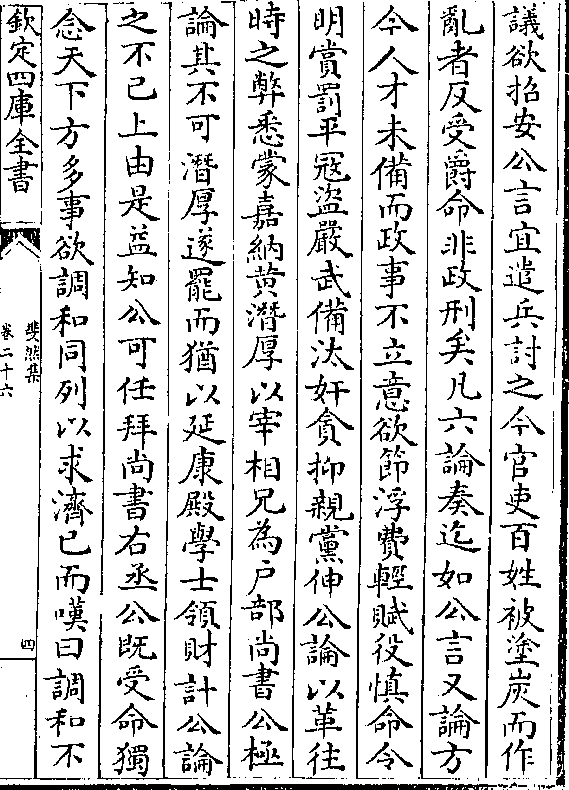 議欲招安公言宜遣兵討之今官吏百姓被塗炭而作
亂者反受爵命非政刑矣凡六論奏迄如公言又論方
今人才未備而政事不立意欲節浮費輕賦役慎命令
明賞罰平冦盜嚴武備汰奸貪抑親黨伸公論以革往
時之弊悉蒙嘉納黄潛厚以宰相兄為户部尚書公極
論其不可潛厚遂罷而猶以延康殿學士領財計公論
之不已上由是益知公可任拜尚書右丞公既受命獨
念天下方多事欲調和同列以求濟已而嘆曰調和不
欽定四庫全書
斐然集
卷二十六
四